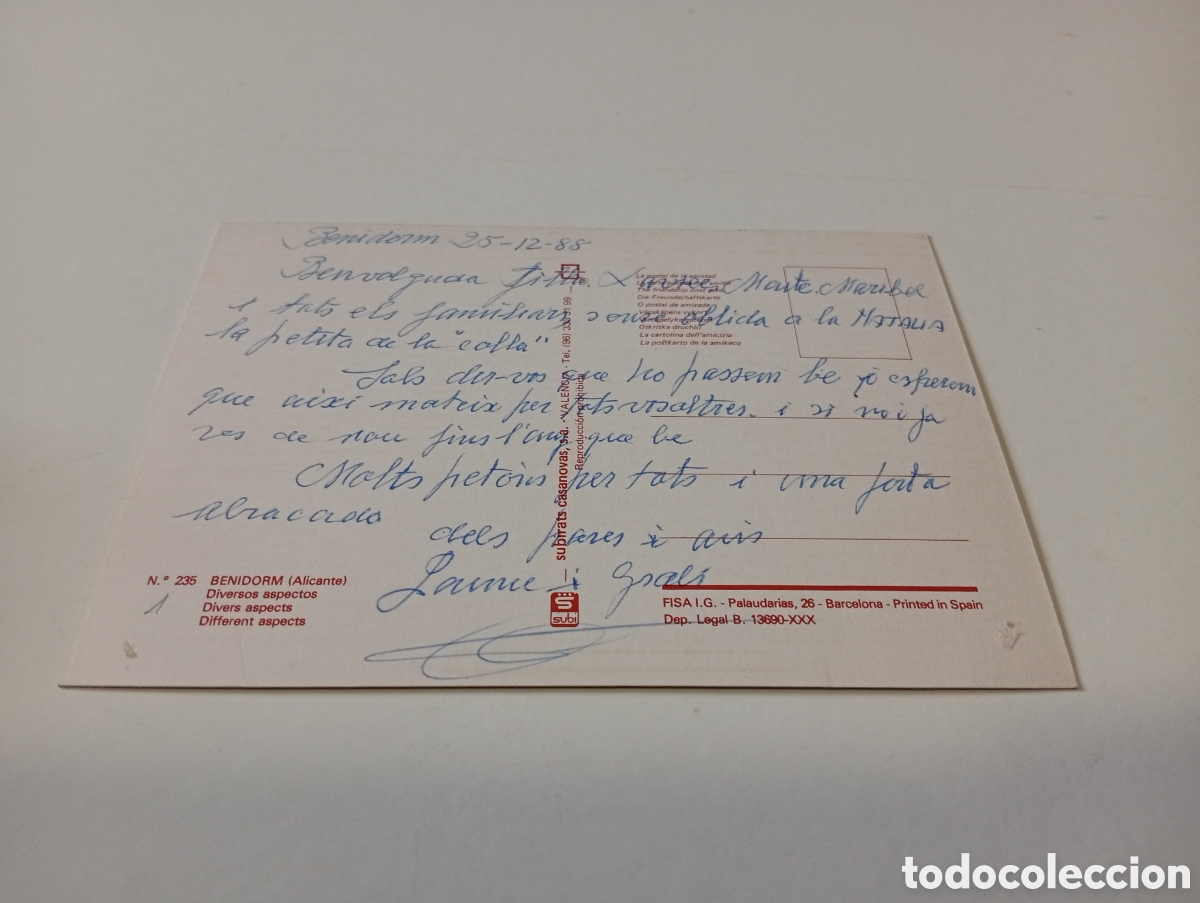 Benidorm 25-12-88
Benvolguda Maite. Maribel
i tots els familiars, sense oblida a la NATALIA
la petita de la "colla"
Sols dir-vos que ho passem be i esperem
que aixi mateix per tots vosaltres. i si no i ja
res de nou fins l'any que be
Molts petons per tots i una forta
abracada
dels pares i avis
Jaume i
La postal de la amistad
The friendship post card
Die Freundschaftskarte
O postal de amizade
Otkritka druchbi
La cartolina dell'amicizia
La poŝtkarto de la amikeco
subirats casanovas, s.a. - VALENCIA - Tel. (96)
Reproducción prohibida
subi
N.º 235 BENIDORM (Alicante)
Diversos aspectos
Divers aspects
Different aspects
1
FISA I.G. - Palaudarias, 26 - Barcelona - Printed in Spain
Dep. Legal B. 13690-XXX
todocoleccion